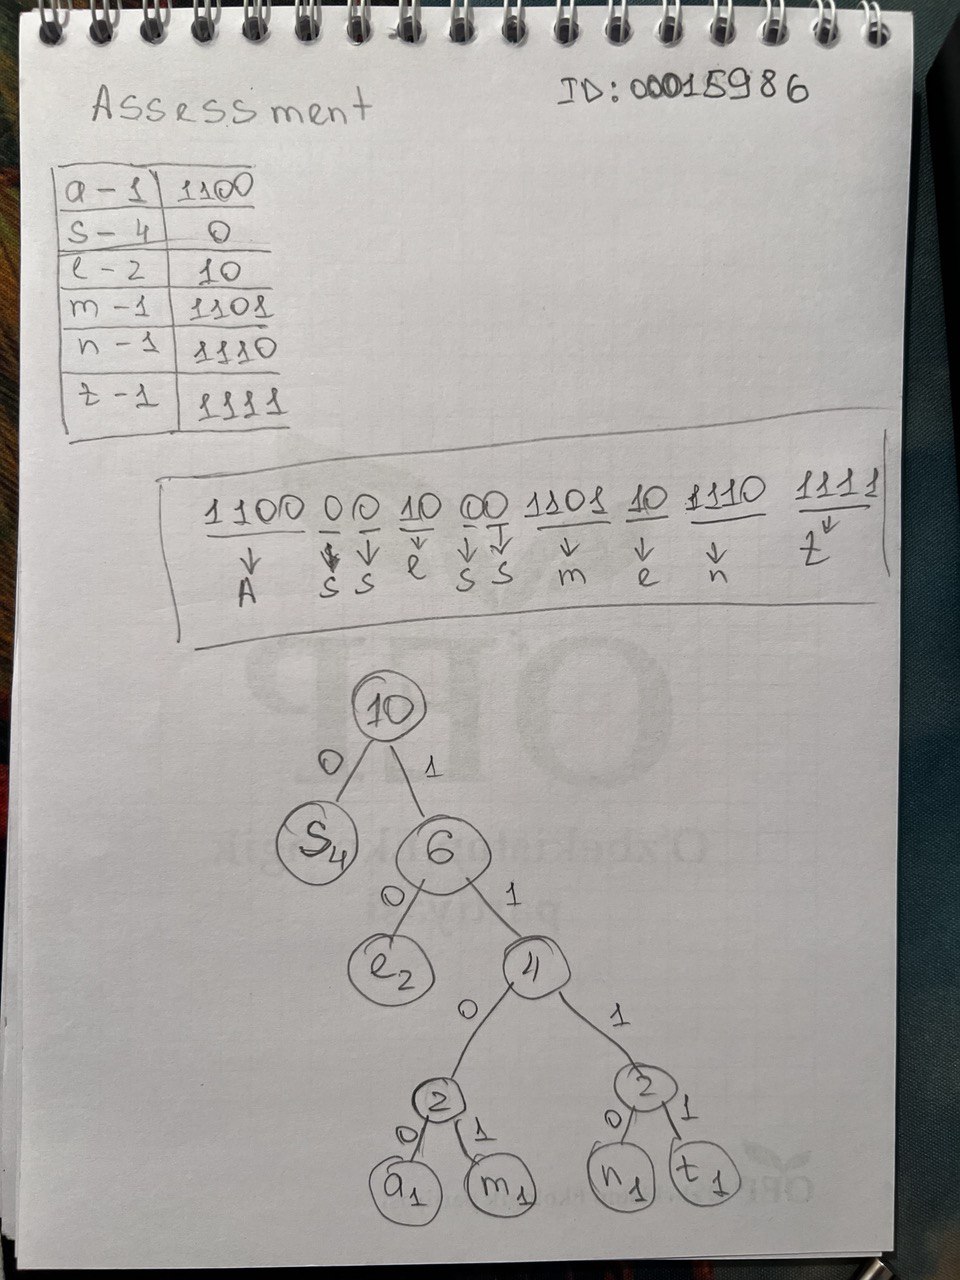 Assessment
ID: 00015986
a - 1 1100
s - 4 0
e - 2 10
m - 1 1101
n - 1 1110
t - 1 1111
1100 0 0 10 00 1101 10 1110 1111
A s s e s s m e n t
10
0 1
S4 6
0 1
e2 4
0 1
2 2
0 1 0 1
a1 m1 n1 t1